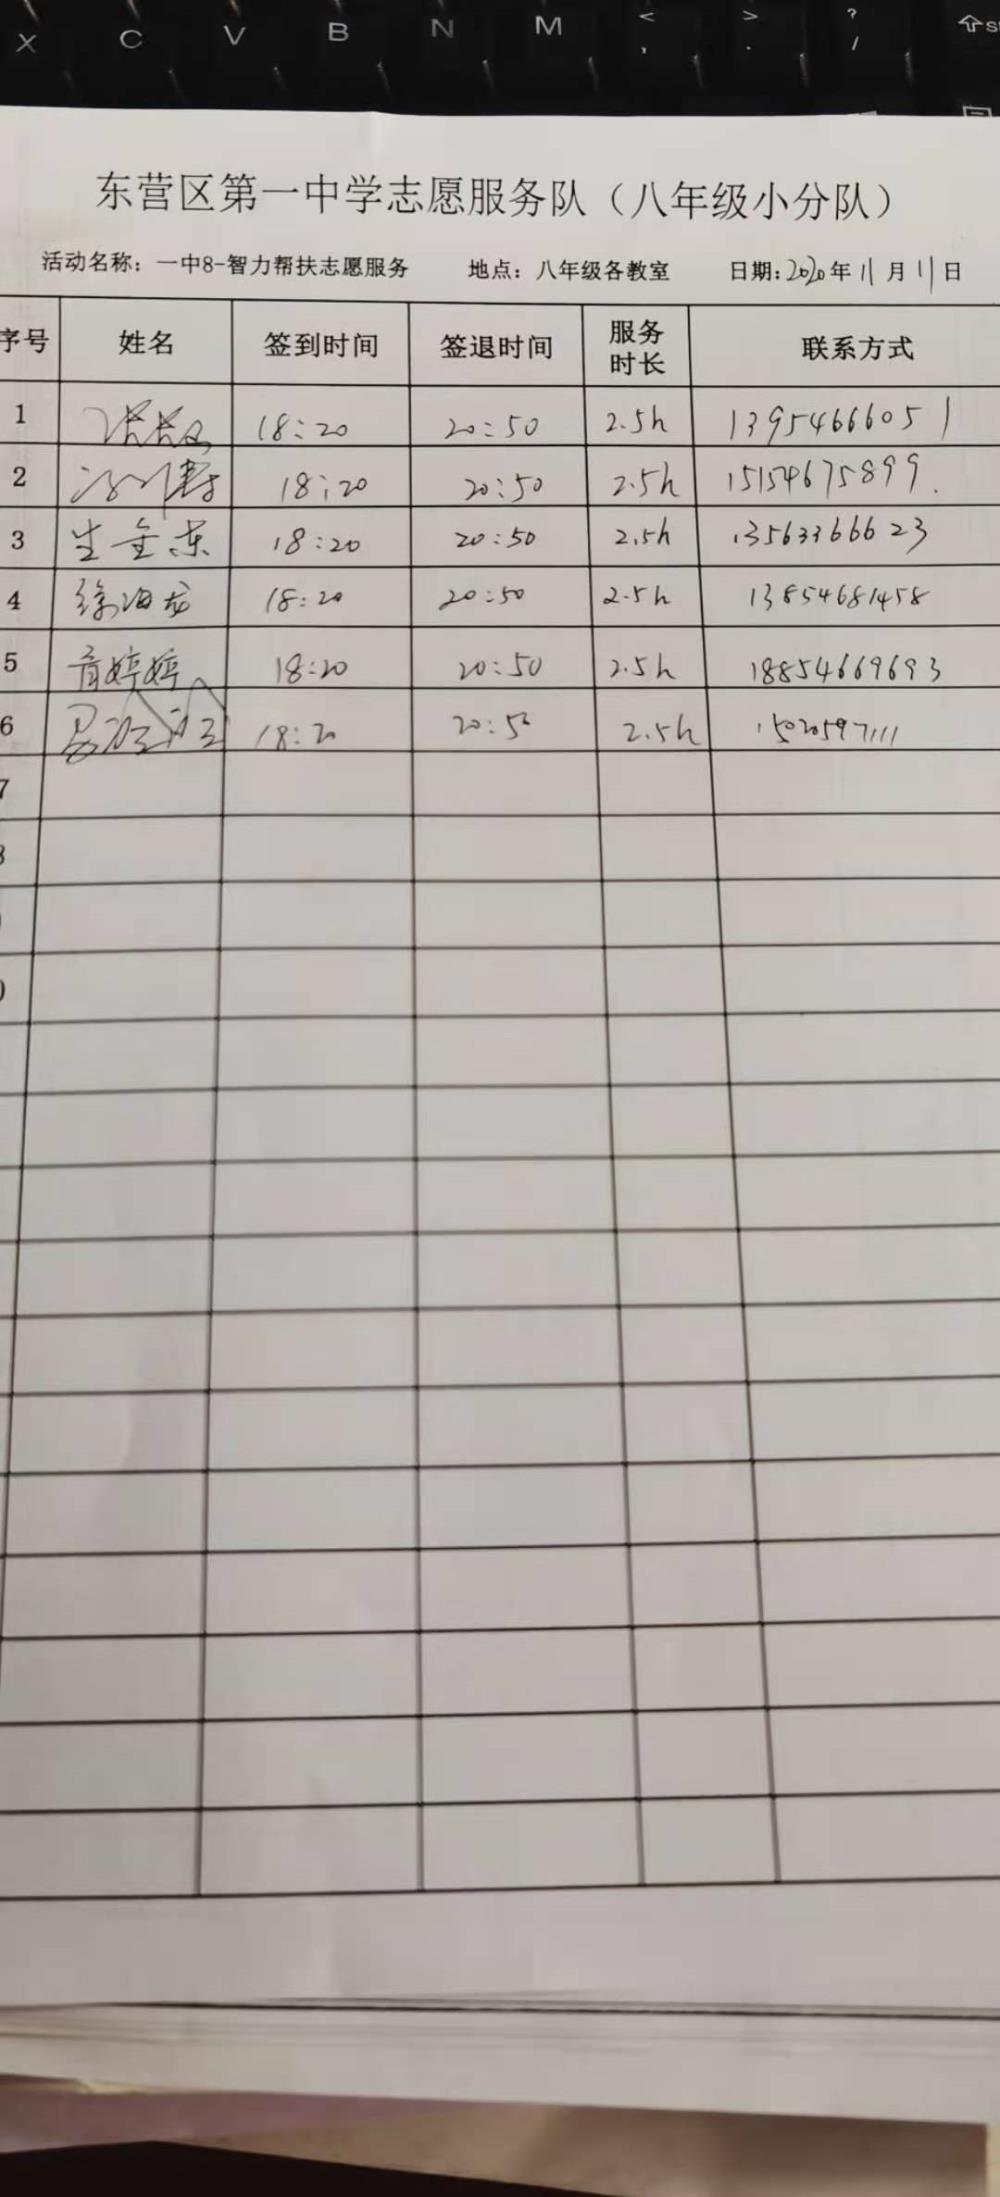 X C V B N M < , > . ? /
东营区第一中学志愿服务队（八年级小分队）
活动名称：一中8-智力帮扶志愿服务 地点：八年级各教室 日期：2020年11月11日
序号 姓名 签到时间 签退时间 服务时长 联系方式
1 18:20 20:50 2.5h 13954666051
2 18:20 20:50 2.5h 15154675899.
3 生金东 18:20 20:50 2.5h 13563366623
4 徐海龙 18:20 20:50 2.5h 13854681458
5 婷婷 18:20 20:50 2.5h 18854669693
6 18:20 20:50 2.5h 15020597111
7